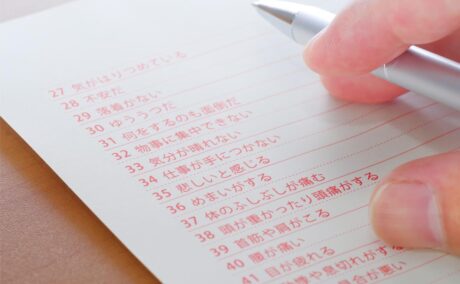 27 気がはりつめている
28 不安だ
29 落着かない
30 ゆううつだ
31 何をするのも面倒だ
32 物事に集中できない
33 気分が晴れない
34 仕事が手につかない
35 悲しいと感じる
36 めまいがする
37 体のふしぶしが痛む
38 頭が重かったり頭痛がする
39 首筋や肩がこる
40 腰が痛い
41 目が疲れる
や息切れがする
合が悪い